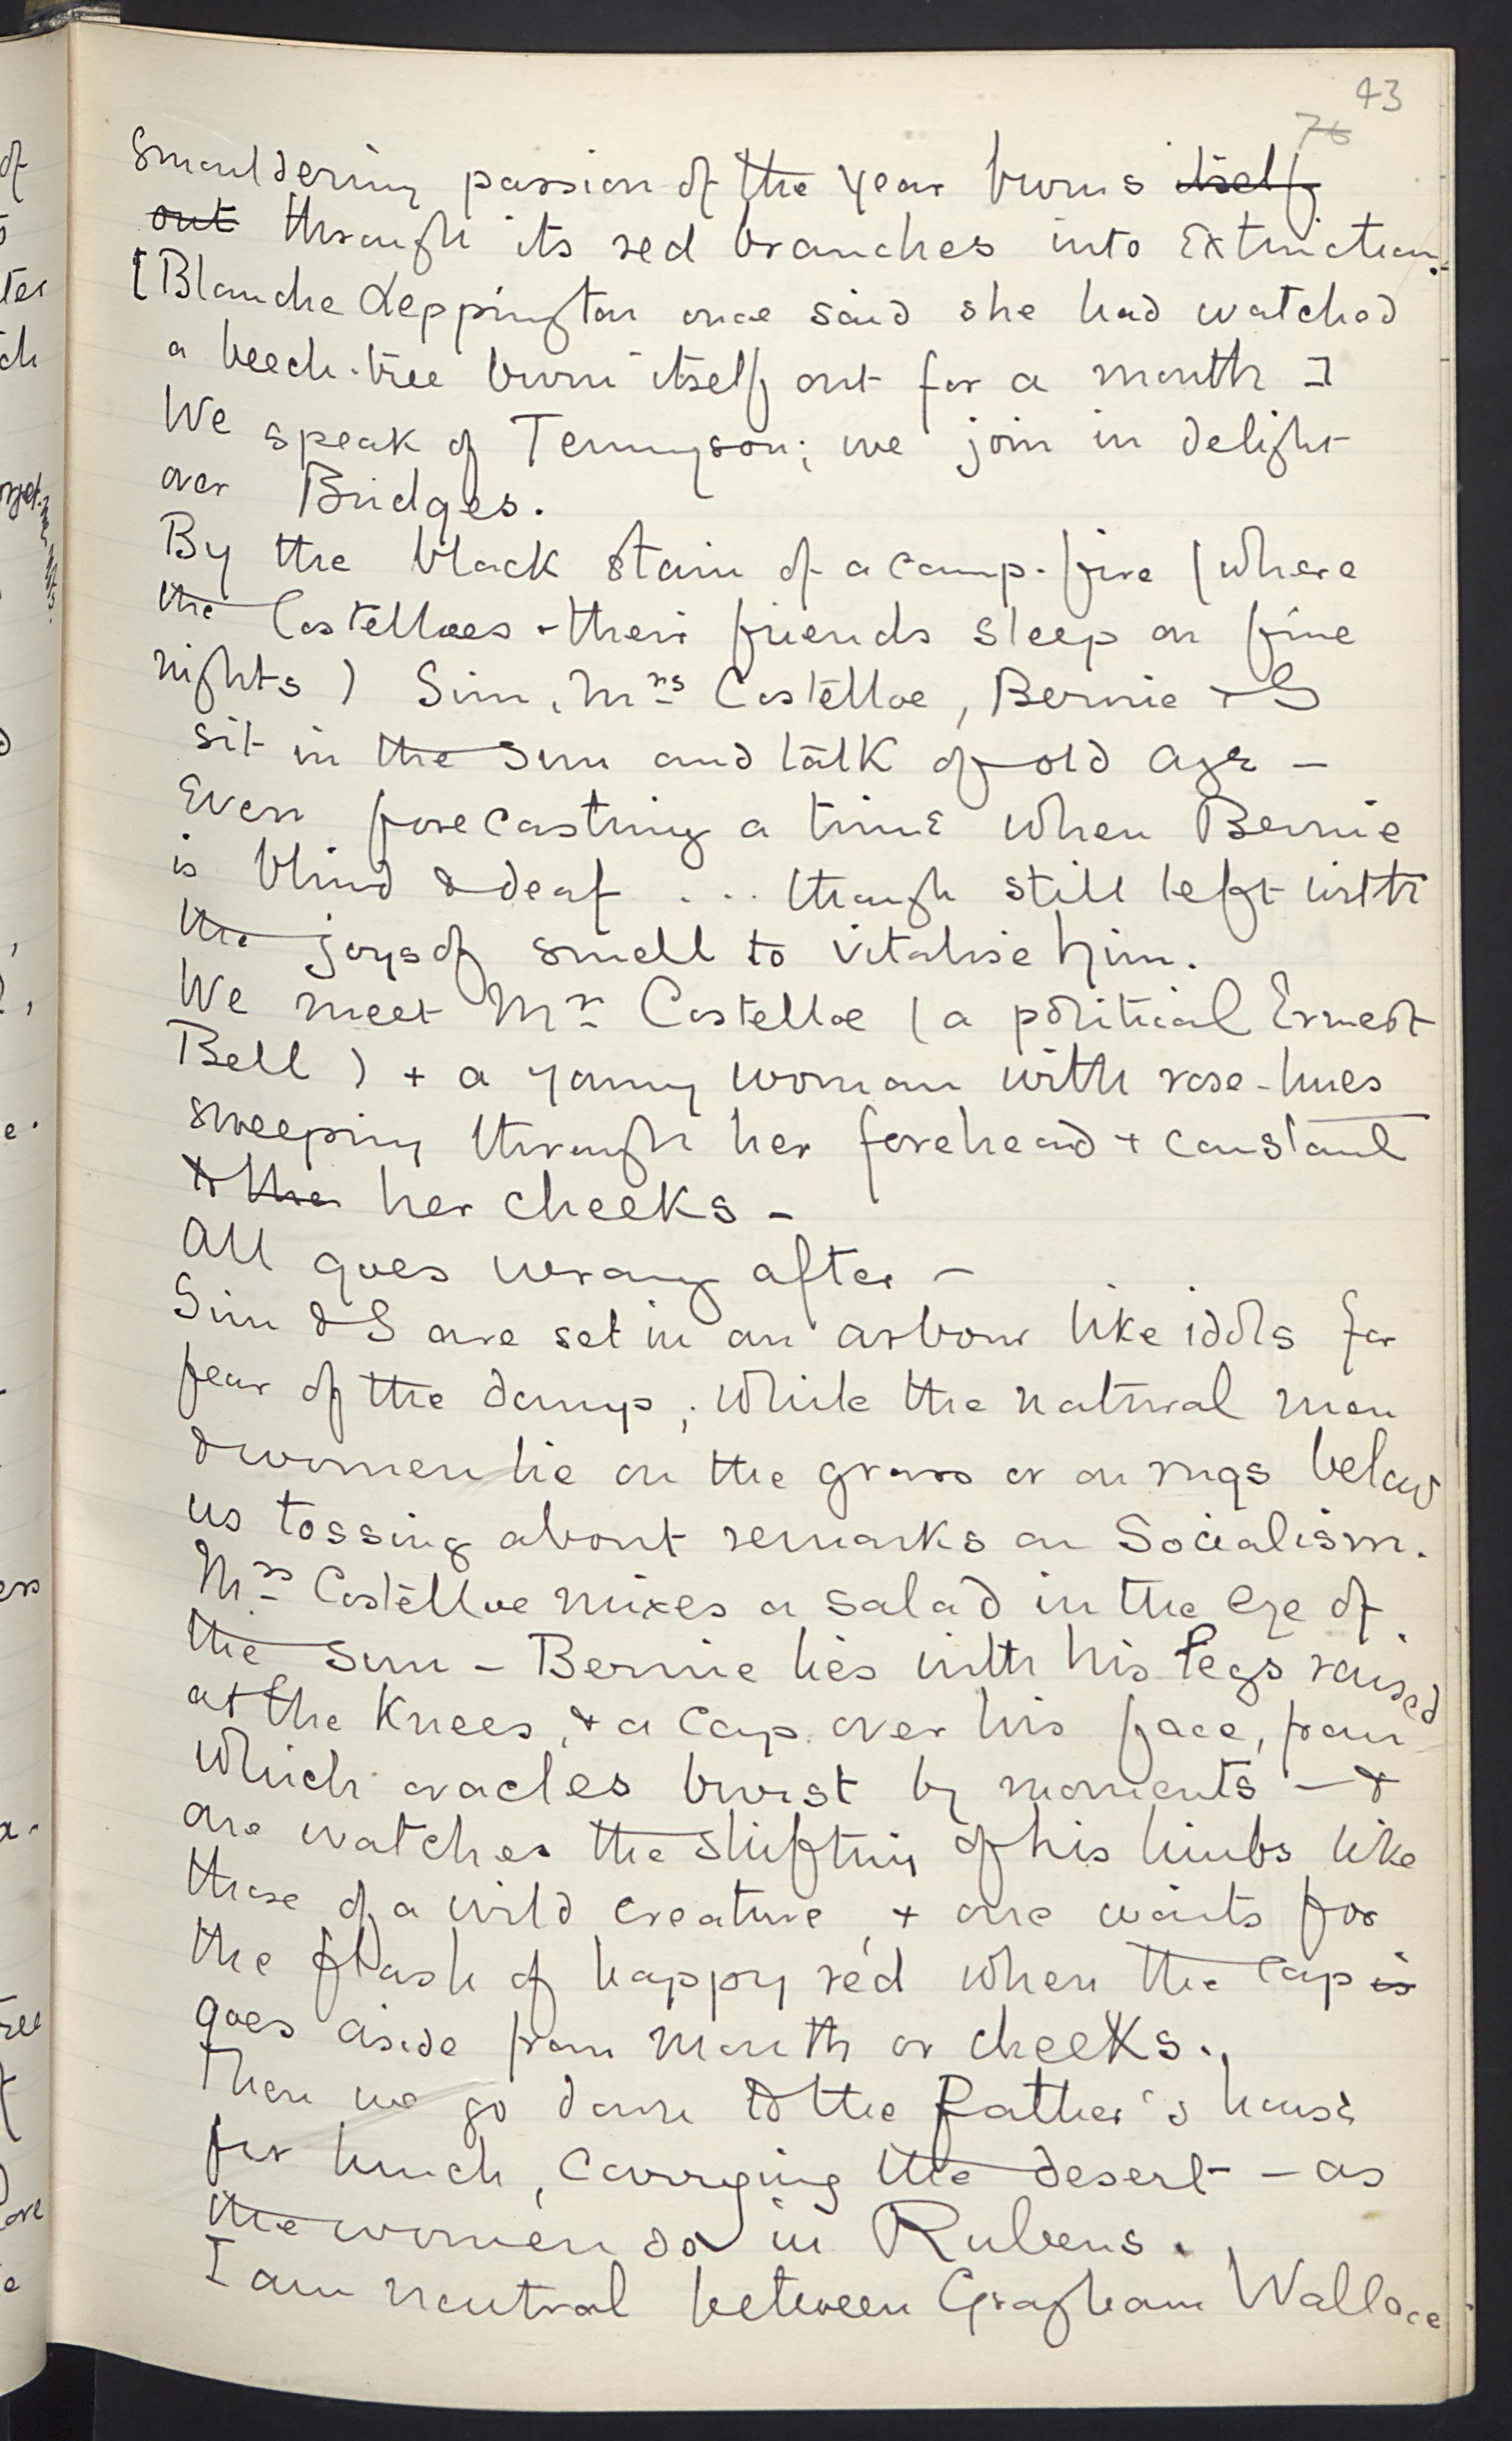 43
76
Smouldering passion of the year burns itself
out through its red branches into Extinction.
[Blanche Leppington once said she had watched
a beech-tree burn itself out for a month]
We speak of Tennyson; we join in delight
over Bridges.
By the black stain of a camp-fire (where
the Costelloes & their friends sleep on fine
nights) Sim, Mrs Costelloe, Bernie & I
sit in the sun and talk of old age –
Even forecasting a time when Bernie
is blind & deaf ... though still left with
the joys of smell to vitalise him.
We meet Mr Costelloe (a political Ernest
Bell) + a young woman with rose-hues
sweeping through her forehead + constant
to the her cheeks –
All goes wrong after –
Sim & I are set in an arbour like idols for
fear of the damp, while the natural men
& women lie on the grass or on rugs below
us tossing about remarks on Socialism.
Mrs Costelloe mixes a salad in the eye of
the sun – Bernie lies with his legs raised
at the knees, & a cap over his face, from
which oracles burst by moments – &
one watches the shifting of his limbs like
those of a wild creature, + one waits for
the flash of happy red when the cap is
goes aside from mouth or cheeks.
Then we go down to the Father's house
for lunch, carrying the desert – as
the women do in Rubens.
I am neutral between Graham Wallace